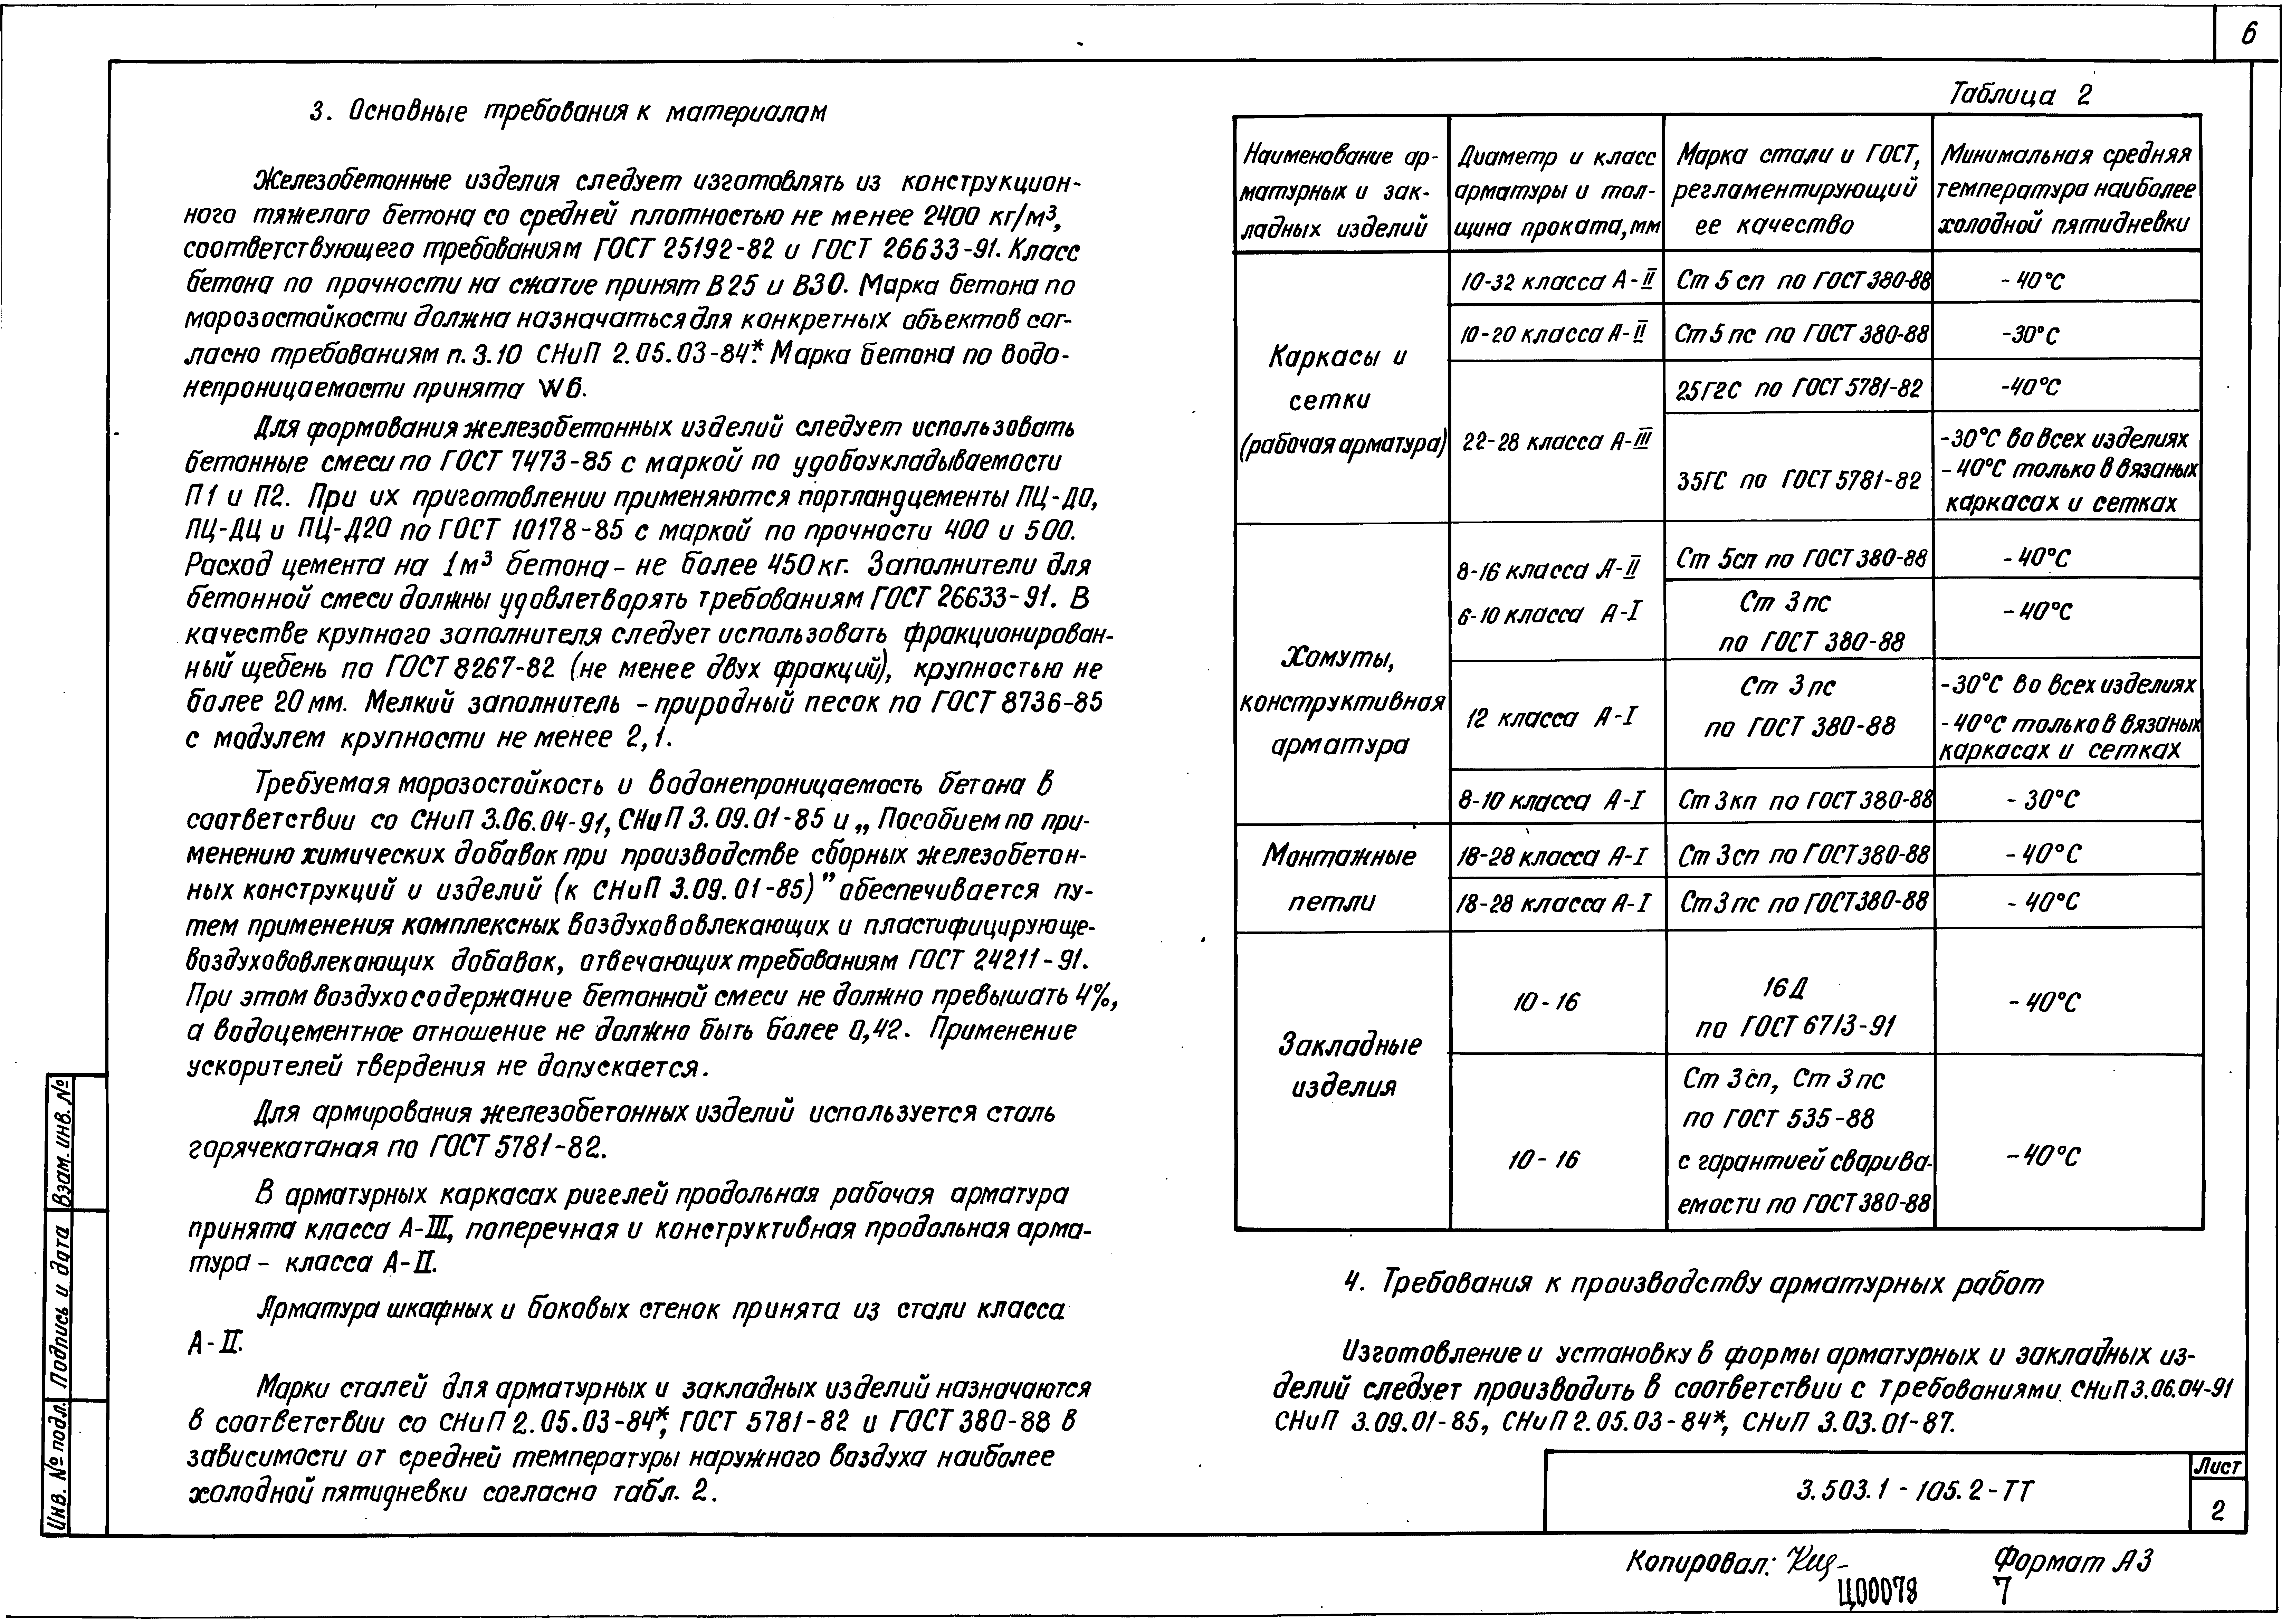 6
3. Основные требования к материалам
Железобетонные изделия следует изготовлять из конструкцион-
ного тяжелого бетона со средней плотностью не менее 2400 кг/м³,
соответствующего требованиям ГОСТ 25192-82 и ГОСТ 26633-91. Класс
бетона по прочности на сжатие принят В25 и В30. Марка бетона по
морозостойкости должна назначаться для конкретных объектов сог-
ласно требованиям п. 3.10 СНиП 2.05.03-84*. Марка бетона по водо-
непроницаемости принята W6.
Для формования железобетонных изделий следует использовать
бетонные смеси по ГОСТ 7473-85 с маркой по удобоукладываемости
П1 и П2. При их приготовлении применяются портландцементы ПЦ-Д0,
ПЦ-ДЦ и ПЦ-Д20 по ГОСТ 10178-85 с маркой по прочности 400 и 500.
Расход цемента на 1м³ бетона - не более 450 кг. Заполнители для
бетонной смеси должны удовлетворять требованиям ГОСТ 26633-91. В
качестве крупного заполнителя следует использовать фракционирован-
ный щебень по ГОСТ 8267-82 (не менее двух фракций), крупностью не
более 20 мм. Мелкий заполнитель - природный песок по ГОСТ 8736-85
с модулем крупности не менее 2,1.
Требуемая морозостойкость и водонепроницаемость бетона в
соответствии со СНиП 3.06.04-91, СНиП 3.09.01-85 и „Пособием по при-
менению химических добавок при производстве сборных железобетон-
ных конструкций и изделий (к СНиП 3.09.01-85)” обеспечивается пу-
тем применения комплексных воздухововлекающих и пластифицирующе-
воздухововлекающих добавок, отвечающих требованиям ГОСТ 24211-91.
При этом воздухосодержание бетонной смеси не должно превышать 4%,
а водоцементное отношение не должно быть более 0,42. Применение
ускорителей твердения не допускается.
Для армирования железобетонных изделий используется сталь
горячекатаная по ГОСТ 5781-82.
В арматурных каркасах ригелей продольная рабочая арматура
принята класса А-III, поперечная и конструктивная продольная арма-
тура - класса А-II.
Арматура шкафных и боковых стенок принята из стали класса
А-II.
Марки сталей для арматурных и закладных изделий назначаются
в соответствии со СНиП 2.05.03-84*, ГОСТ 5781-82 и ГОСТ 380-88 в
зависимости от средней температуры наружного воздуха наиболее
холодной пятидневки согласно табл. 2.
Таблица 2
Наименование ар-
матурных и зак-
ладных изделий
Диаметр и класс
арматуры и тол-
щина проката, мм
Марка стали и ГОСТ,
регламентирующий
ее качество
Минимальная средняя
температура наиболее
холодной пятидневки
Каркасы и
сетки
(рабочая арматура)
10-32 класса А-II
Ст 5 сп по ГОСТ 380-88
-40°С
10-20 класса А-II
Ст 5 пс по ГОСТ 380-88
-30°С
22-28 класса А-III
25Г2С по ГОСТ 5781-82
-40°С
35ГС по ГОСТ 5781-82
-30°С во всех изделиях
-40°С только в вязаных
каркасах и сетках
Хомуты,
конструктивная
арматура
8-16 класса А-II
6-10 класса А-I
Ст 5сп по ГОСТ 380-88
-40°С
Ст 3 пс
по ГОСТ 380-88
-40°С
12 класса А-I
Ст 3 пс
по ГОСТ 380-88
-30°С во всех изделиях
-40°С только в вязаных
каркасах и сетках
8-10 класса А-I
Ст 3 кп по ГОСТ 380-88
-30°С
Монтажные
петли
18-28 класса А-I
Ст 3 сп по ГОСТ 380-88
-40°С
18-28 класса А-I
Ст 3 пс по ГОСТ 380-88
-40°С
Закладные
изделия
10-16
16Д
по ГОСТ 6713-91
-40°С
10-16
Ст 3 сп, Ст 3 пс
по ГОСТ 535-88
с гарантией сварива-
емости по ГОСТ 380-88
-40°С
4. Требования к производству арматурных работ
Изготовление и установку в формы арматурных и закладных из-
делий следует производить в соответствии с требованиями СНиП 3.06.04-91
СНиП 3.09.01-85, СНиП 2.05.03-84*, СНиП 3.03.01-87.
Инв. № подл.
Подпись и дата
Взам. инв. №
3.503.1 - 105.2 - ТТ
Лист
2
Копировал:
Формат А3
Ц00078
7